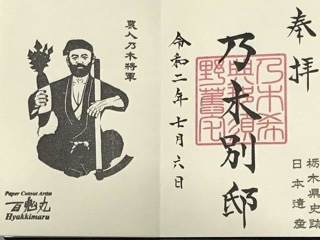 奉拝
栃木県史跡
日本遺産
乃木別邸
乃木希
典那須
野舊宅
令和二年七月六日
農人乃木將軍
Paper Cutout Artist
百鬼丸
Hyakkimaru